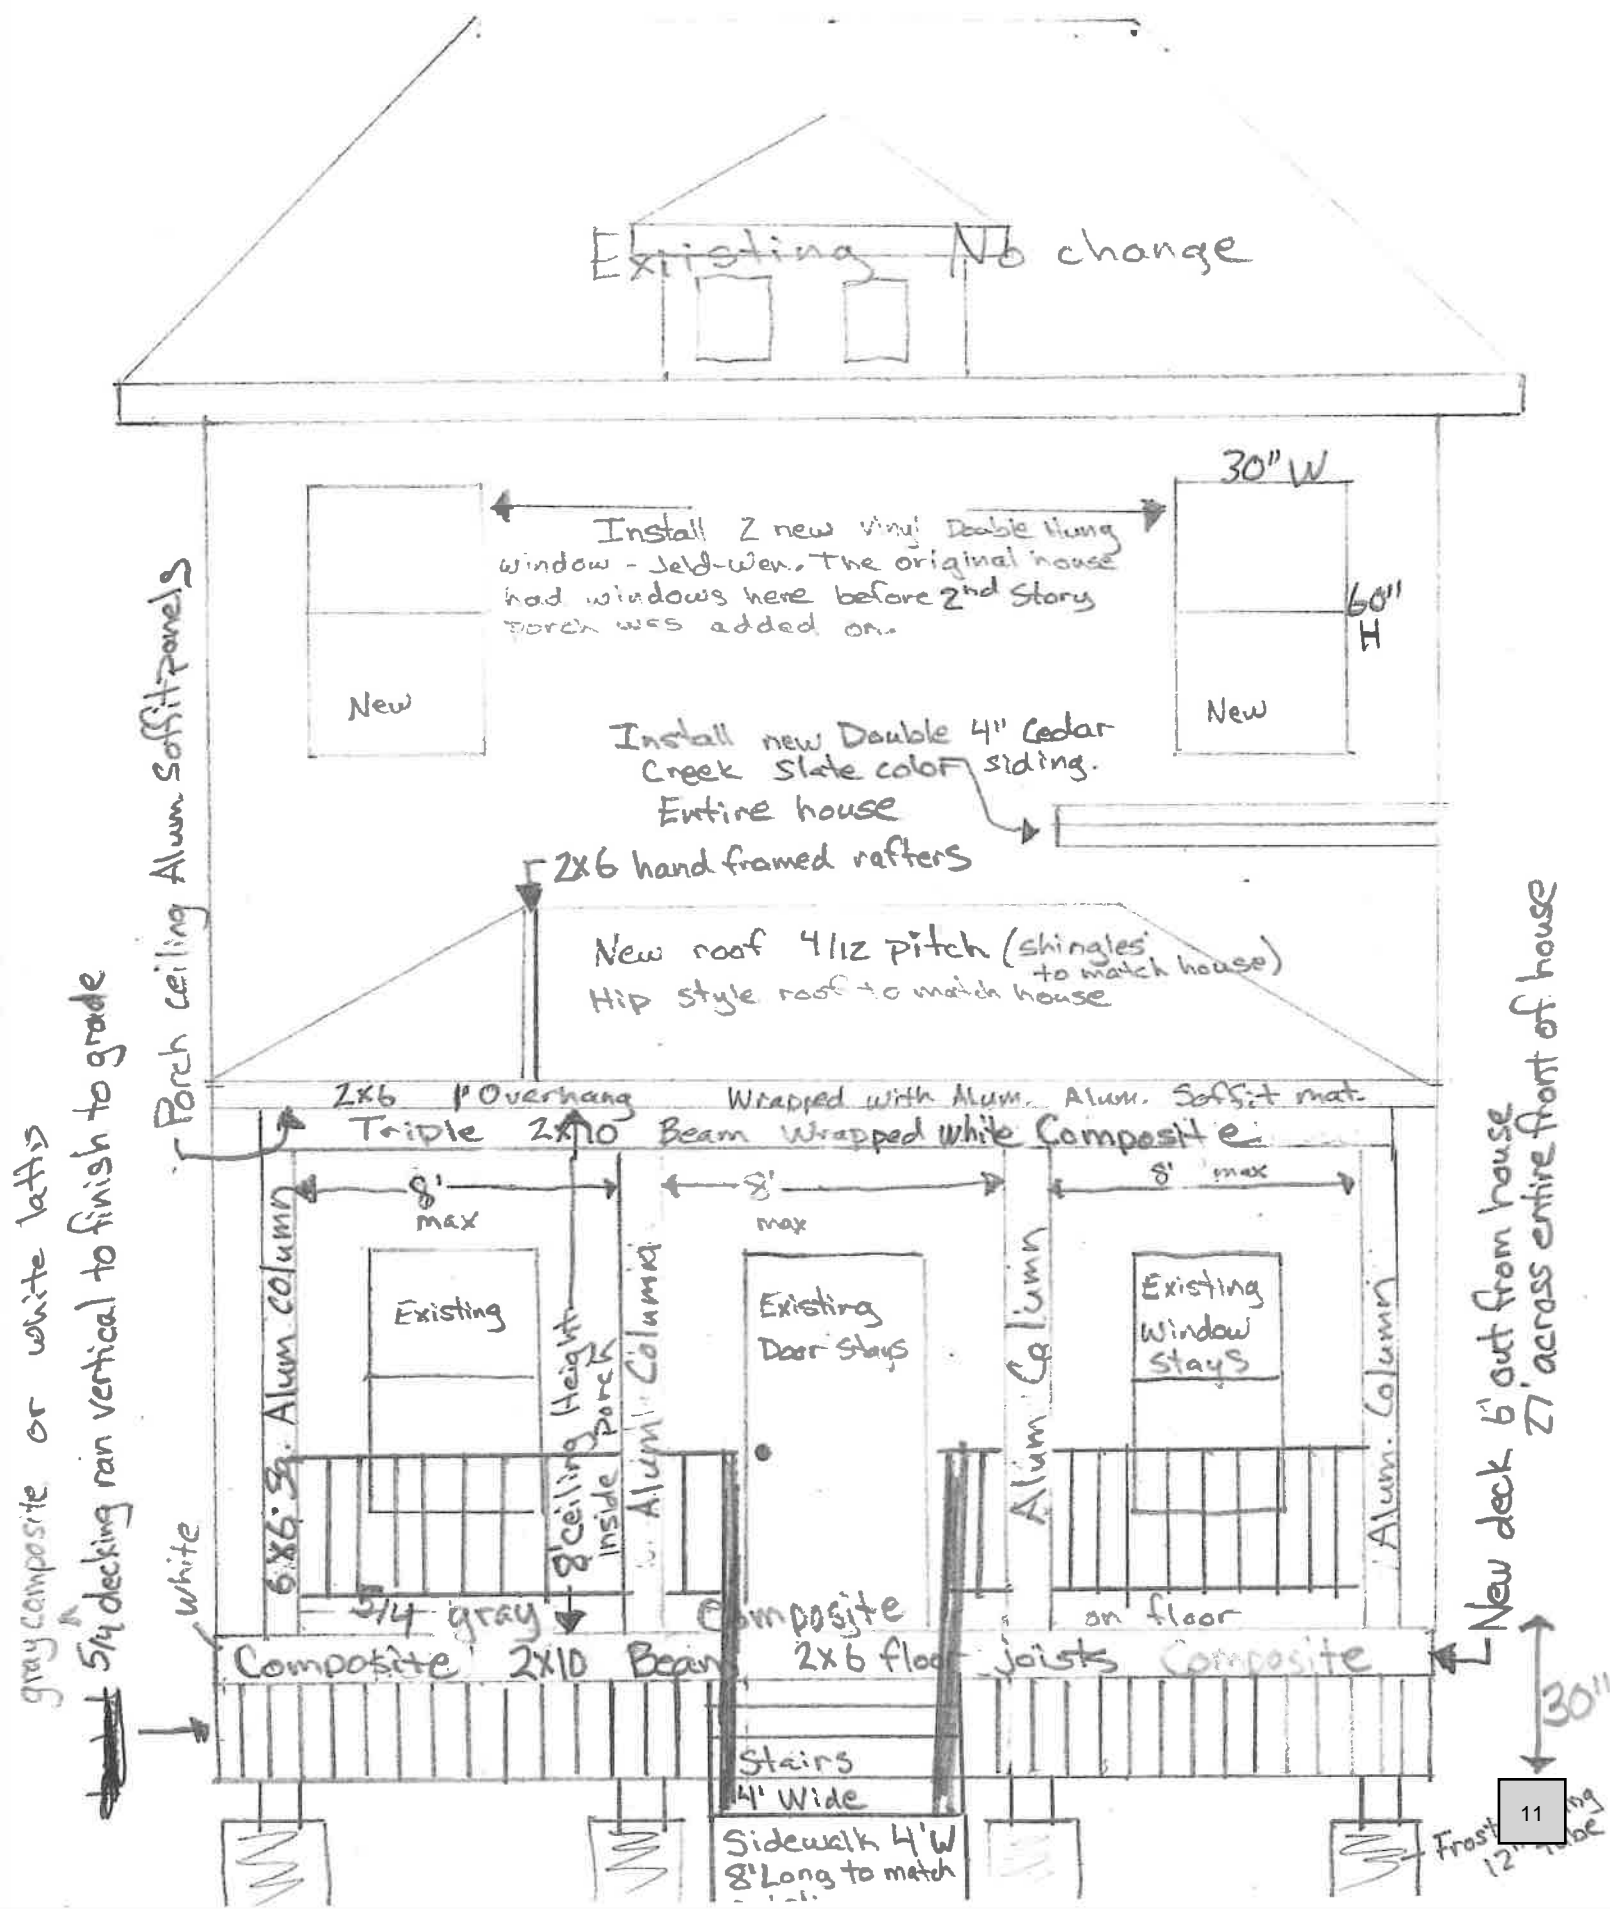 Existing No change
30" W
Install 2 new vinyl Double Hung
window - Jeld-Wen. The original house
had windows here before 2nd Story
porch was added on.
60"
H
New
New
Install new Double 4" Cedar
Creek Slate color siding.
Entire house
2x6 hand framed rafters
New roof 4/12 pitch (shingles
to match house)
Hip style roof to match house
Porch ceiling Alum Soffit panels
2x6 1' Overhang Wrapped with Alum. Alum. Soffit mat.
Triple 2x10 Beam Wrapped white Composite
8'
max
8'
max
8' max
6x6 Alum column
Existing
8' Ceiling Height
Inside porch
Alum Column
Existing
Door stays
Alum Column
Existing
Window
stays
Alum. Column
5/4 gray Composite on floor
Composite 2x10 Beam 2x6 floor joists Composite
Stairs
4' Wide
Sidewalk 4'W
8' Long to match
gray composite or white lattis
5/4 decking ran vertical to finish to grade
white
New deck 6' out from house
27' across entire front of house
30"
11
Frost
12"